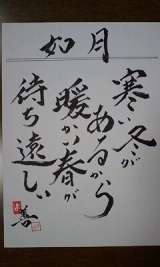 如月
寒い冬が
あるから
暖かい春が
待ち遠しい